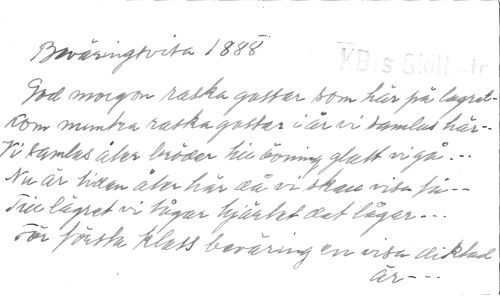 Beväringsvisa 1888
KB:s Skill-tr
God morgon raska gossar som här på lägret-
som muntra raska gossar i år vi samlas här-
Vi samlas åter bröder till övning glatt vi gå...
Nu är tiden åter här då vi skall visa få--
Till lägret vi tågar hjärtat det lågar...
För första klass beväring en visa diktad
är---